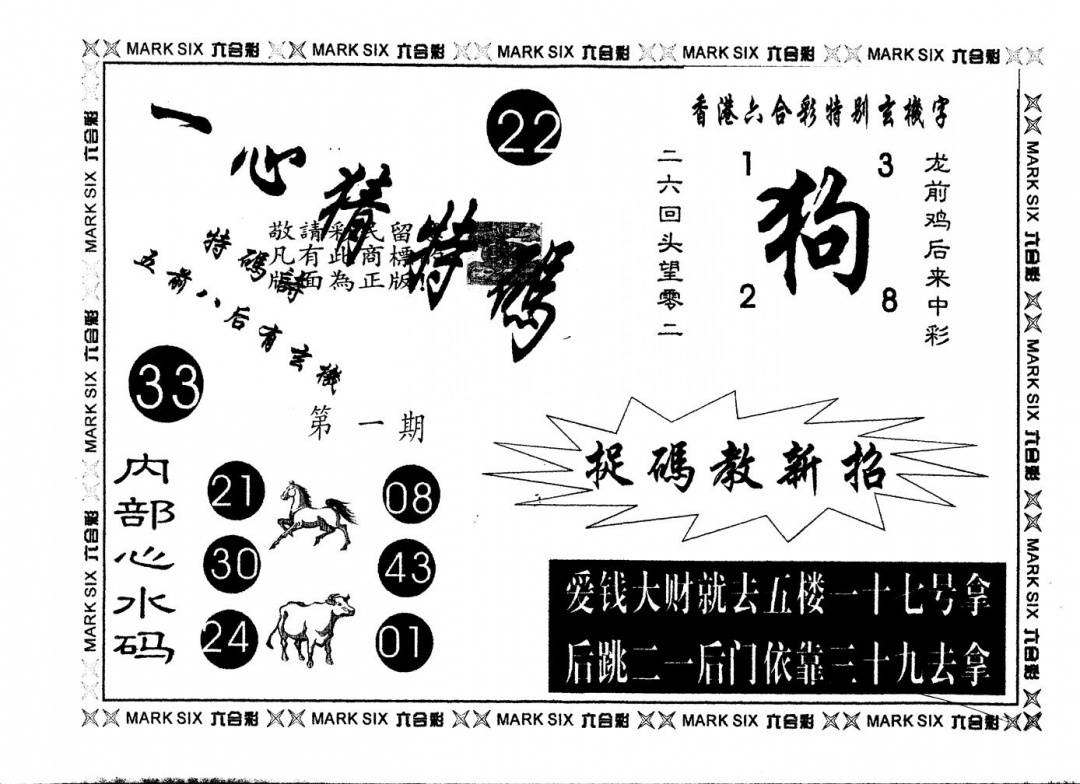 MARK SIX 六合彩 MARK SIX 六合彩 MARK SIX 六合彩 MARK SIX 六合彩 MARK SIX 六合彩
一心猜特碼
22
敬請彩民留
凡有此商標
版面為正版!
特碼詩
五前八后有玄機
33
第一期
香港六合彩特别玄機字
二六回头望零二
1 3
狗
2 8
龙前鸡后来中彩
捉碼教新招
内部心水码
21 08
30 43
24 01
爱钱大财就去五楼一十七号拿
后跳二一后门依靠三十九去拿
MARK SIX 六合彩 MARK SIX 六合彩 MARK SIX 六合彩
MARK SIX 六合彩 MARK SIX 六合彩 MARK SIX 六合彩
MARK SIX 六合彩 MARK SIX 六合彩 MARK SIX 六合彩 MARK SIX 六合彩 MARK SIX 六合彩